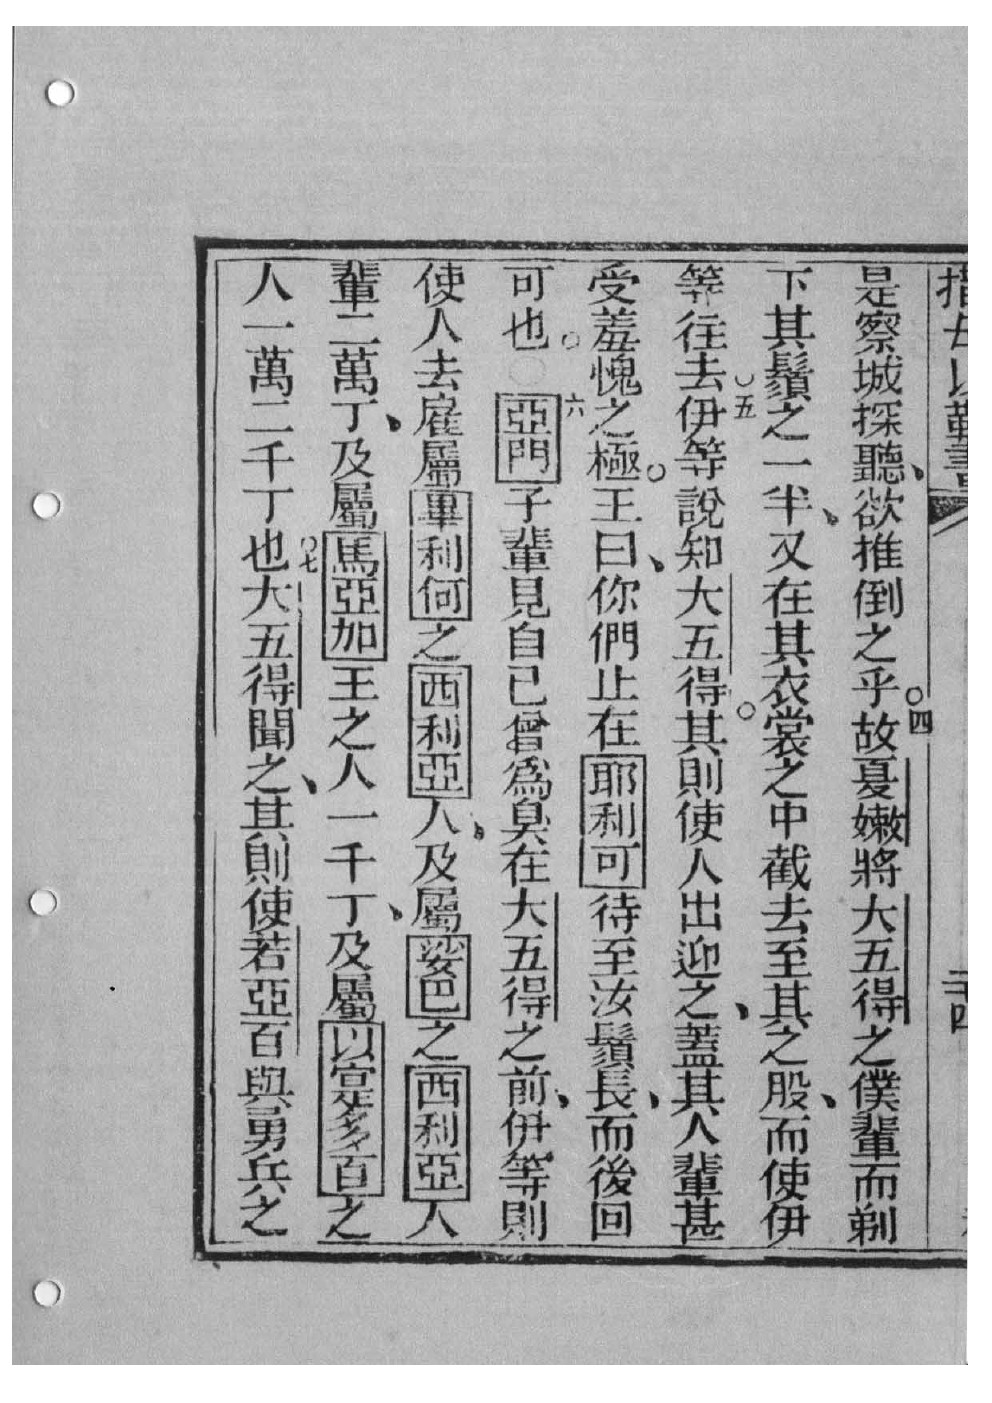 是察城探聽、欲推倒之乎○四故戛嫩將大五得之僕輩而剃
下其鬚之一半、又在其衣裳之中截去至其之股、而使伊
等往去○五伊等說知大五得○其則使人出迎之、蓋其人輩甚
受羞愧之極○王曰、你們止在耶利可待至汝鬚長、而後回
可也○六亞門子輩見自已曾爲臭在大五得之前、伊等則
使人去雇屬畢利何之西利亞人、及屬娑巴之西利亞人
輩二萬丁、及屬馬亞加王之人一千丁、及屬以寔多百之
人一萬二千丁也○七大五得聞之、其則使若亞百與勇兵之